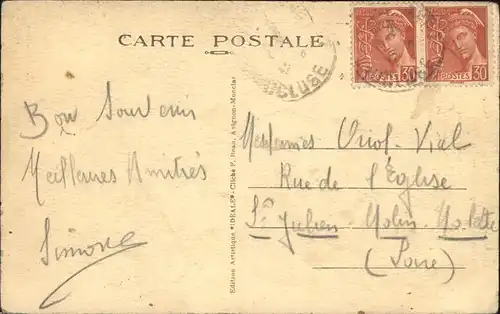 CARTE POSTALE
VAUCLUSE
POSTES 30
POSTES 30
Bon Souvenir
Meilleures Amitiés
Simone
Edition Artistique "IDEALE" - Cliché F. Brun, Avignon-Monclar
Mesdames Oriol-Vial
Rue de l'Église
St Julien Molin-Molette
(Loire)